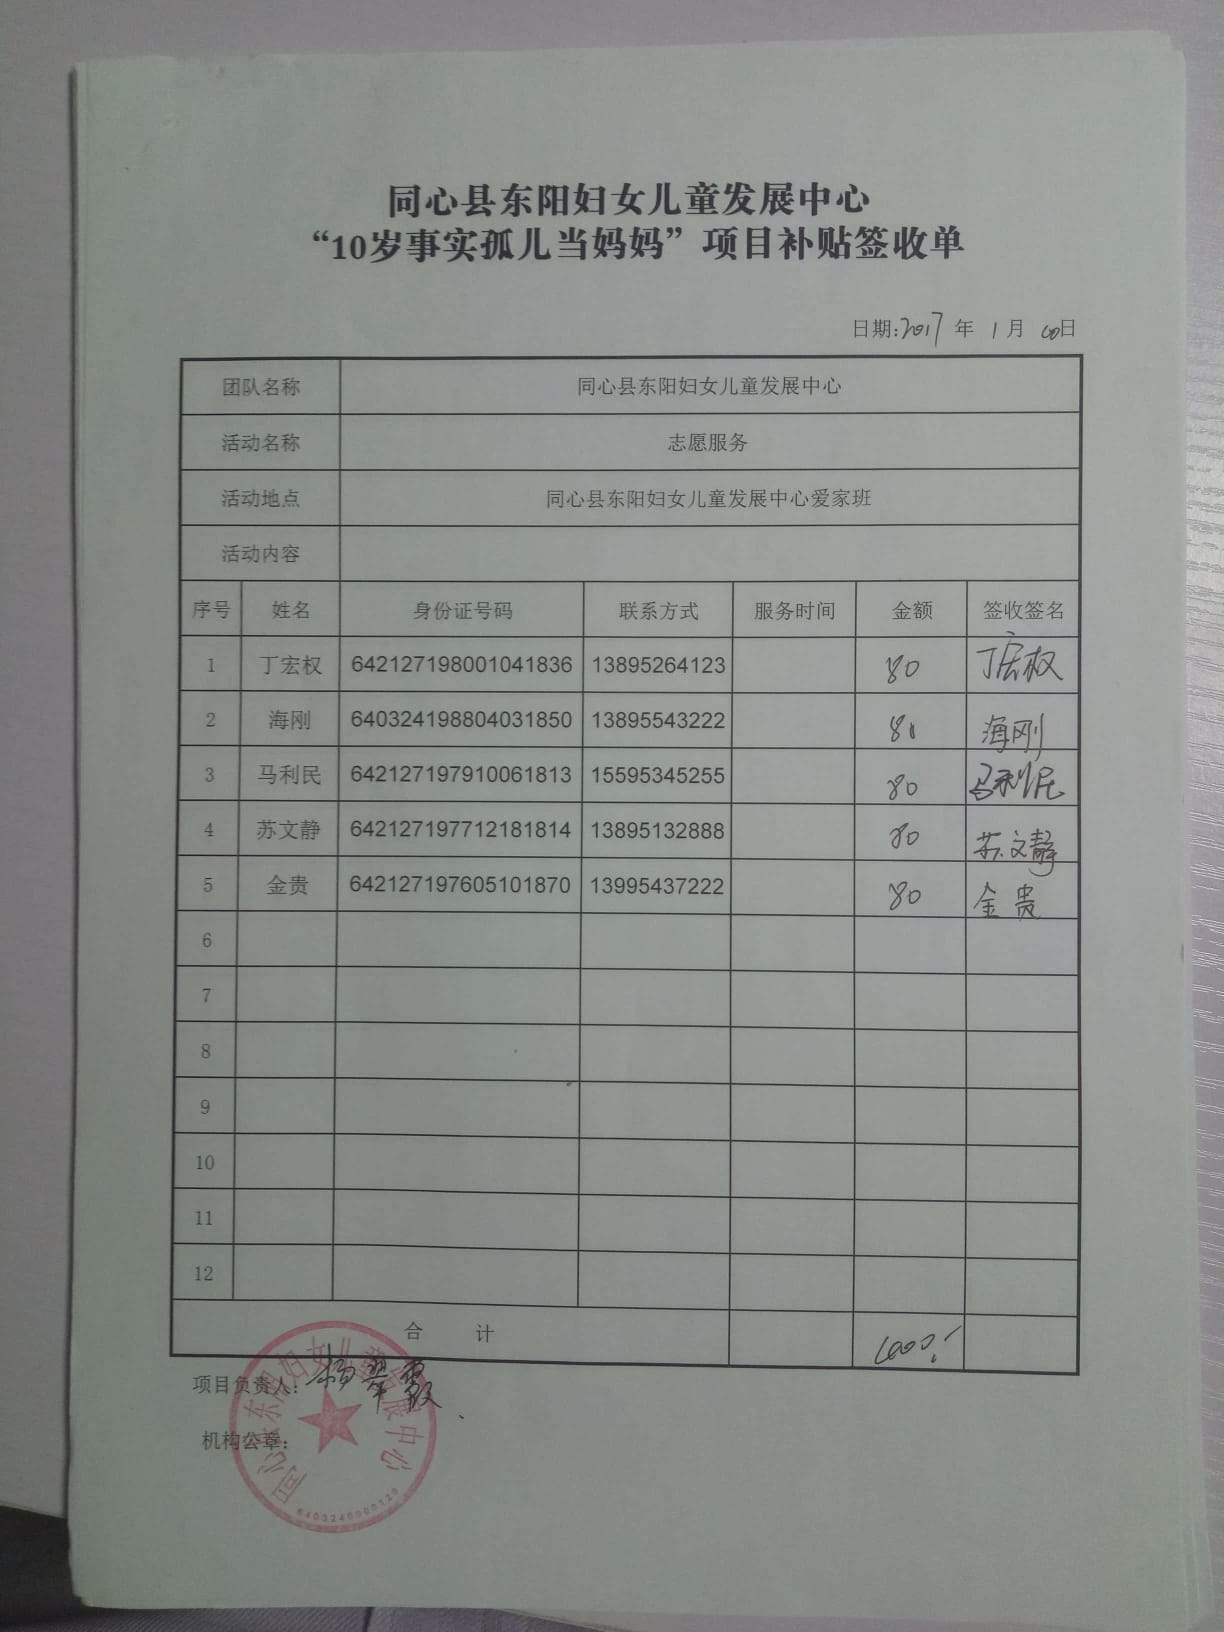 同心县东阳妇女儿童发展中心
“10岁事实孤儿当妈妈”项目补贴签收单
日期:2017 年 1 月 日
团队名称 同心县东阳妇女儿童发展中心
活动名称 志愿服务
活动地点 同心县东阳妇女儿童发展中心爱家班
活动内容
序号 姓名 身份证号码 联系方式 服务时间 金额 签收签名
1 丁宏权 642127198001041836 13895264123 80 丁宏权
2 海刚 640324198804031850 13895543222 80 海刚
3 马利民 642127197910061813 15595345255 80 马利民
4 苏文静 642127197712181814 13895132888 80 苏文静
5 金贵 642127197605101870 13995437222 80 金贵
6
7
8
9
10
11
12
合 计
项目负责人: 杨翠霞
机构公章:
同心县东阳妇女儿童发展中心
6403240000129